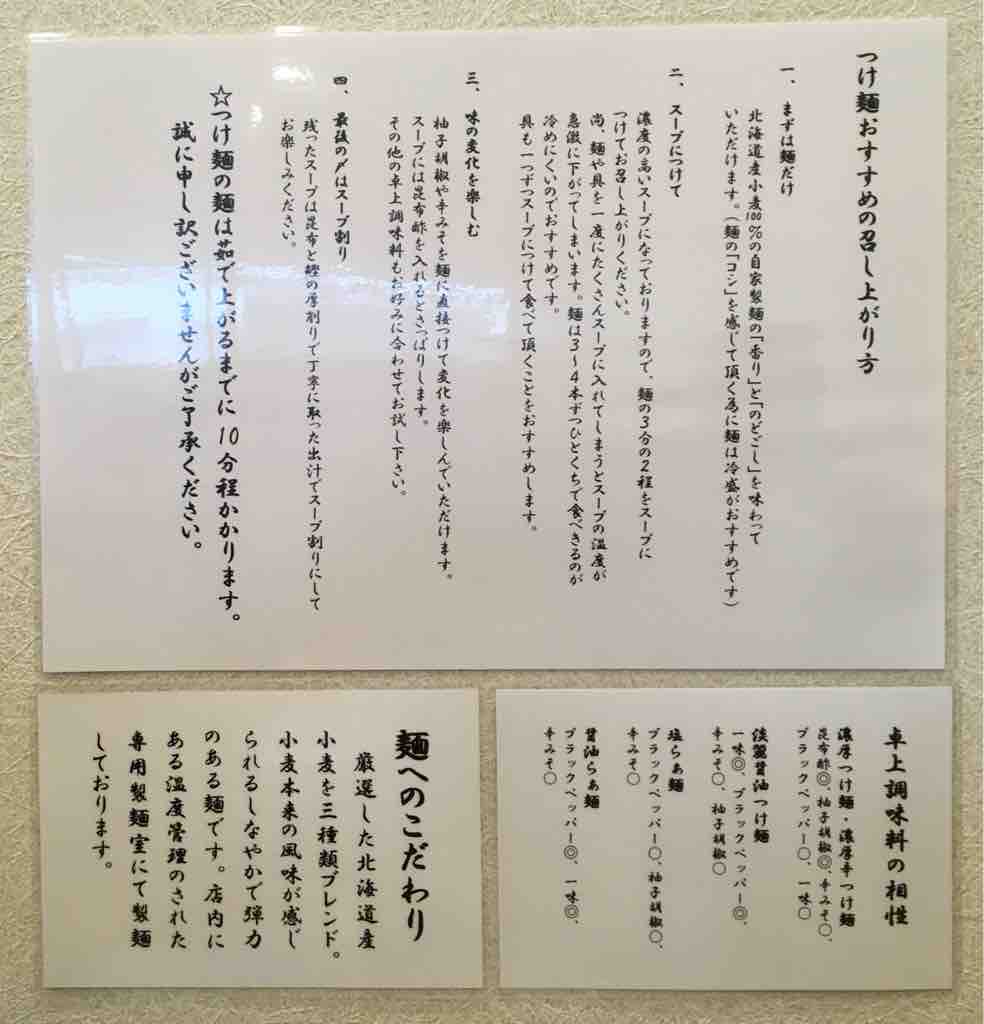 つけ麺おすすめの召し上がり方
一、まずは麺だけ
北海道産小麦100%の自家製麺の「香り」と「のどごし」を味わって
いただけます。(麺の「コシ」を感じて頂く為に麺は冷盛がおすすめです)
二、スープにつけて
濃度の高いスープになっておりますので、麺の3分の2程をスープに
つけてお召し上がりください。
尚、麺や具を一度にたくさんスープに入れてしまうとスープの温度が
急激に下がってしまいます。麺は3~4本ずつひとくちで食べきるのが
冷めにくいのでおすすめです。
具も一つずつスープにつけて食べて頂くことをおすすめします。
三、味の変化を楽しむ
柚子胡椒や辛みそを麺に直接つけて変化を楽しんでいただけます。
スープには昆布酢を入れるとさっぱりします。
その他の卓上調味料もお好みに合わせてお試し下さい。
四、最後の〆はスープ割り
残ったスープは昆布と鰹の厚削りで丁寧に取った出汁でスープ割りにして
お楽しみください。
☆つけ麺の麺は茹で上がるまでに10分程かかります。
誠に申し訳ございませんがご了承ください。
卓上調味料の相性
濃厚つけ麺・濃厚辛つけ麺
昆布酢◎、柚子胡椒◎、辛みそ〇、
ブラックペッパー〇、一味〇
淡麗醤油つけ麺
一味◎、ブラックペッパー◎、
辛みそ〇、柚子胡椒〇
塩らぁ麺
ブラックペッパー〇、柚子胡椒〇、
辛みそ〇
醤油らぁ麺
ブラックペッパー◎、一味◎、
辛みそ〇
麺へのこだわり
厳選した北海道産
小麦を三種類ブレンド。
小麦本来の風味が感じ
られるしなやかで弾力
のある麺です。店内に
ある温度管理のされた
専用製麺室にて製麺
しております。